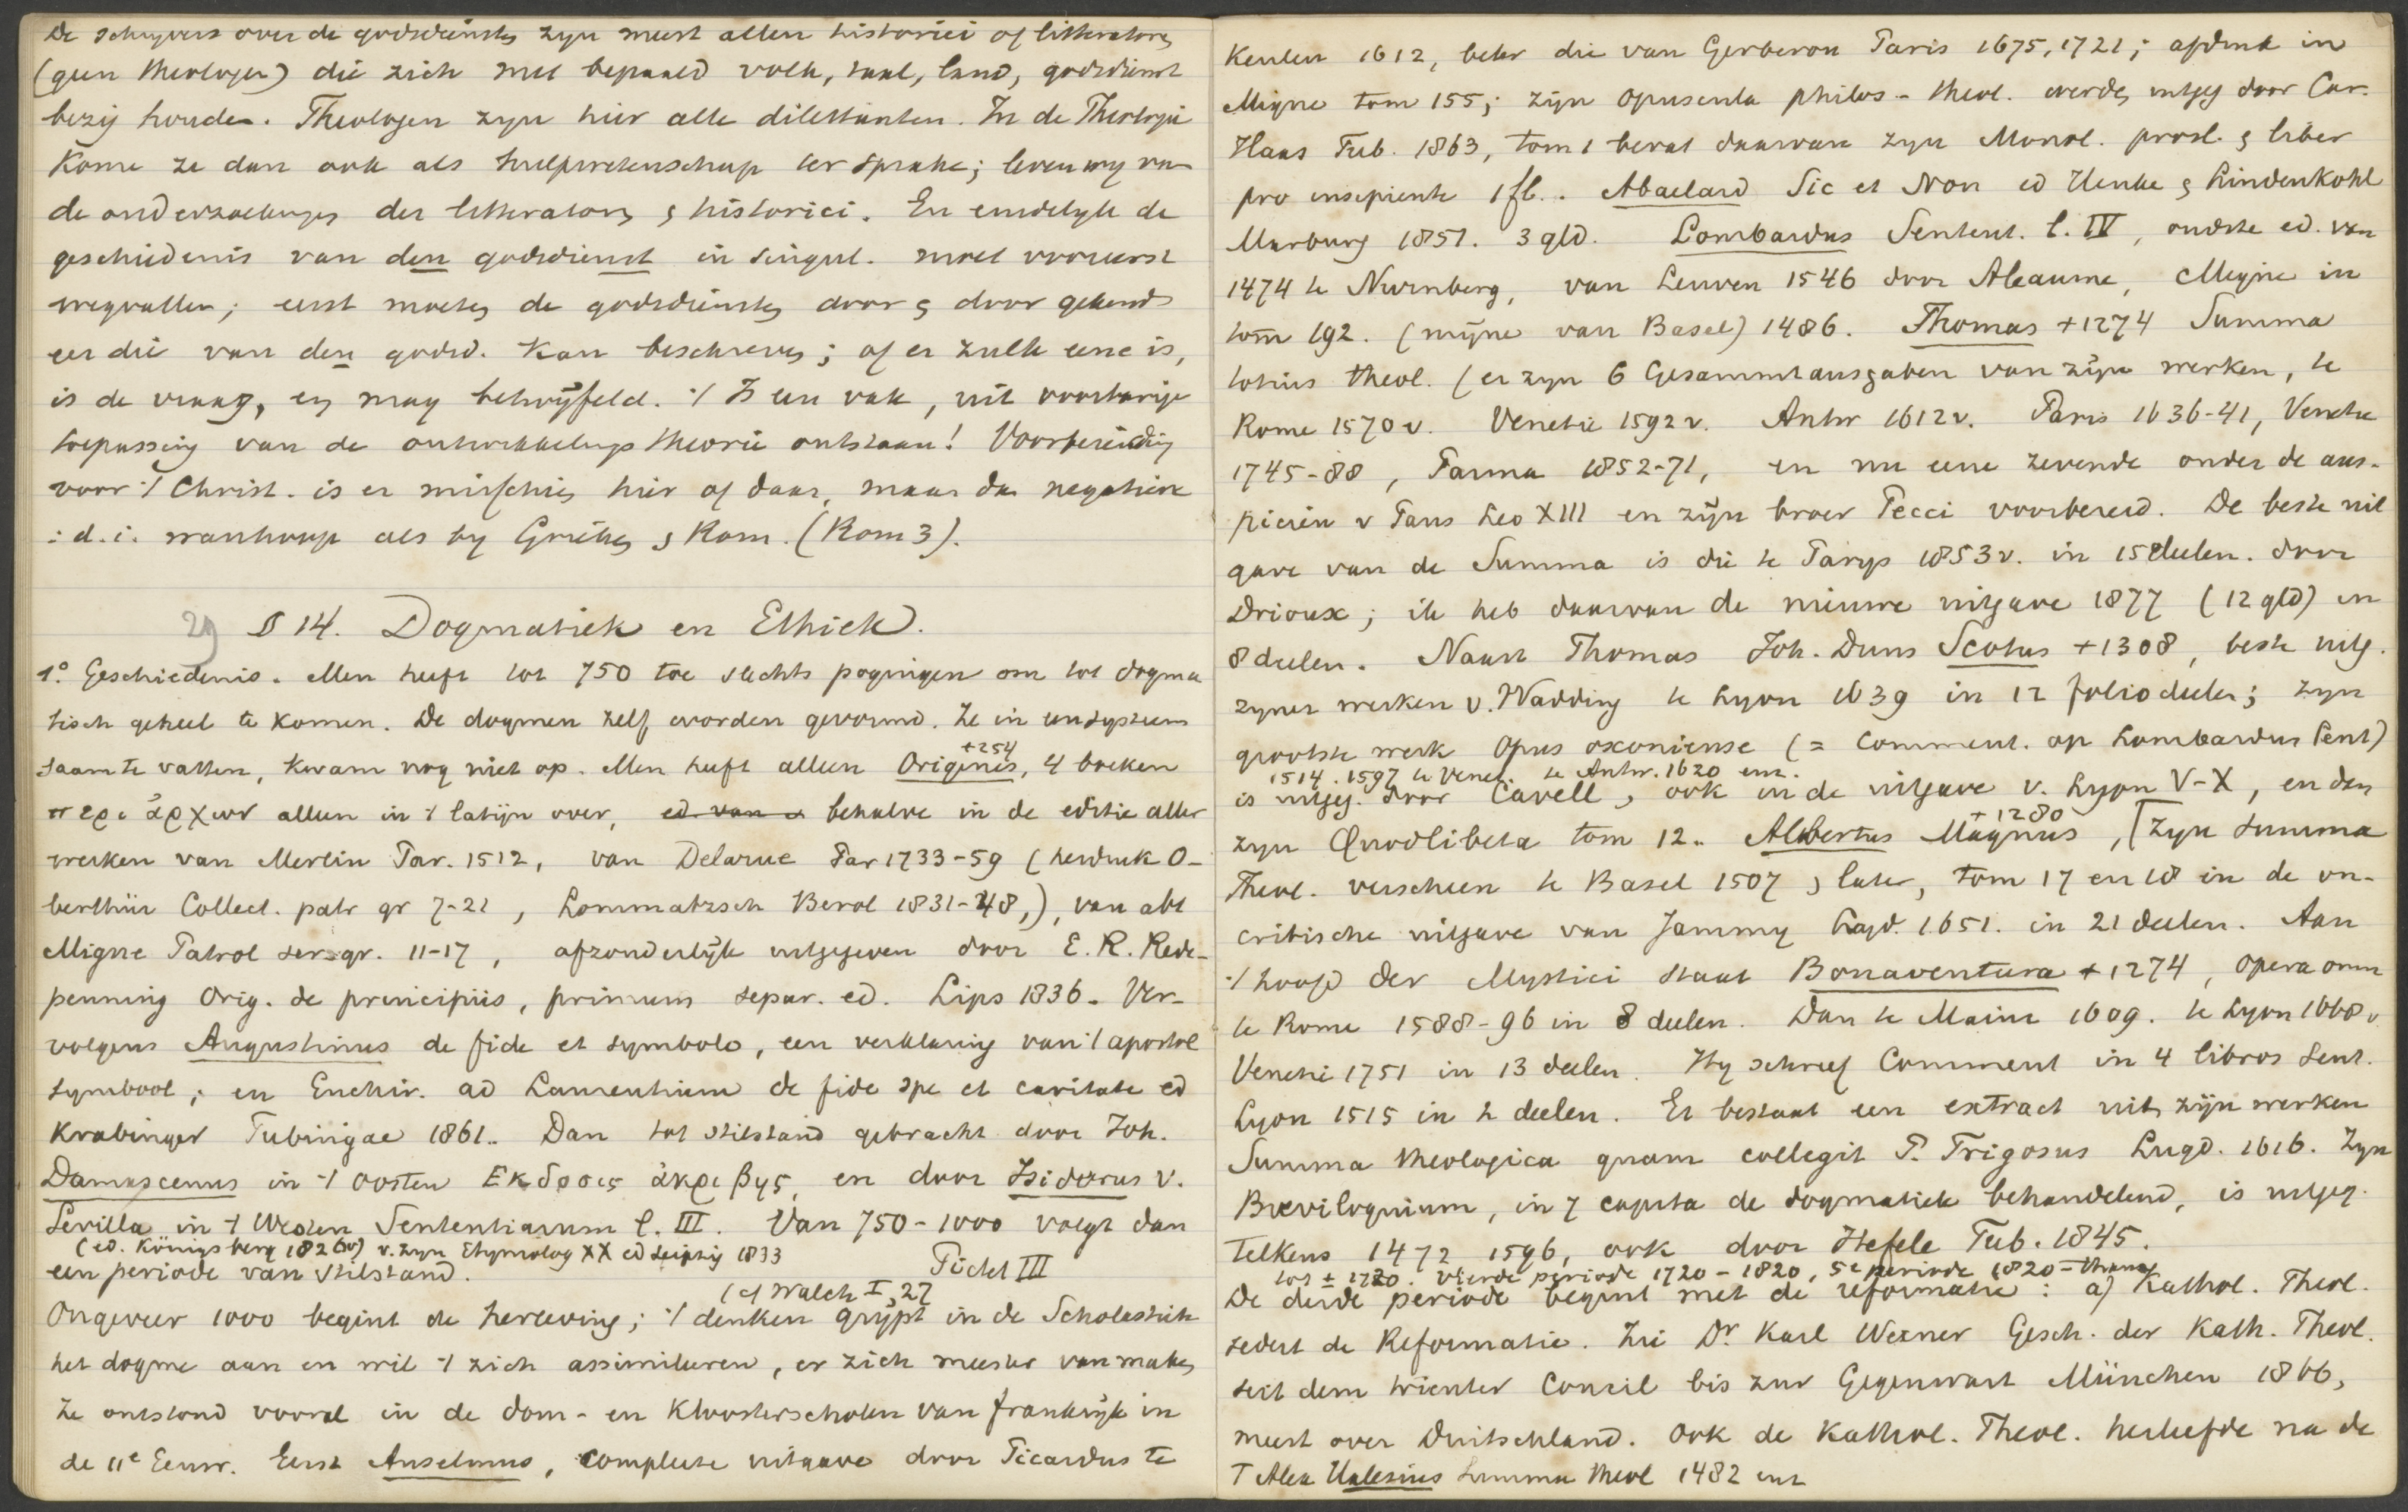 De schrijvers over de godsdiensten zyn meest allen historici of litteratoren
(geen theologen) die zich met bepaald volk, taal, land, godsdienst
bezig houden. Theologen zyn hier alle dilettanten. In de Theologie
kome ze dan ook als hulpwetenschap ter sprake; leven wy van
de onderzoekingen der litteratoren & historici. En eindelyk de
geschiedenis van den godsdienst in singul. moet vooreerst
wegvallen; eerst moeten de godsdiensten door & door gekend
eer die van den godsd. kan beschreven; of er zulk eene is,
is de vraag, en mag betwyfeld. 't Is een vak, uit voorbarige
toepassing van de ontwikkelings theorie ontstaan! Voorbereiding
voor 't Christ. is er misschien hier of daar, maar dan negatieve
: d. i. wanhoop als by Grieken & Rom. (Rom 3).
29 § 14. Dogmatiek en Ethiek.
1° Geschiedenis. Men heeft tot 750 toe slechts pogingen om tot dogma
tisch geheel te komen. De dogmen zelf worden gevormd. Ze in een systeem
saam te vatten, kwam nog niet op. Men heeft alleen Origenes, +254 4 boeken
περι ἀρχων alleen in 't latijn over, ed van behalve in de editie aller
werken van Merlin Par. 1512, van Delarue Par 1733-59 (herdruk O-
berthür Collect. patr gr 7-21, Lommatzsch Berol 1831-48,), van abt
Migne Patrol ser gr. 11-17, afzonderlijk uitgegeven door E. R. Rede-
penning Orig. de principiis, primum separ. ed. Lips 1836. Ver-
volgens Augustinus de fide et symbolo, een verklaring van 't apostol
symbool; en Enchir. ad Laurentium de fide spe et caritate ed
Krabinger Tubingae 1861.. Dan tot stilstand gebracht door Joh.
Damascenus in 't oosten Εκδοσις ἀκριβης, en door Isidorus v.
Sevilla in 't Westen Sententiarum l. III. Van 750-1000 volgt dan
(ed. Königsberg 1826v) v. zyn Etymolog XX ed Leipzig 1833
een periode van stilstand. Pictet III
(cf Walch I, 27
Ongeveer 1000 begint de herleving; 't denken grijpt in de Scholastiek
het dogme aan en wil 't zich assimileren, er zich meester van maken
Ze ontstond vooral in de dom- en kloosterscholen van frankrijk in
de 11e Eeuw. Eerst Anselmus, complete uitgave door Picardus te
Keulen 1612, beter die van Gerberon Paris 1675, 1721; afdruk in
Migne tom 155; zijn opuscula philos-theol. werden uitgeg door Car.
Haas Tub. 1863, tom 1 bevat daarvan zyn Monol. prosl. & liber
pro insipiente 1 fl.. Abaelard Sic et Non ed Henke & Lindenkohl
Marburg 1851. 3 gld. Lombardus Sentent. l. IV, oudste ed. van
1474 te Nurnberg, van Leuven 1546 door Aleaume, Migne in
tom 192. (mijne van Basel) 1486. Thomas +1274 Summa
totius theol. (er zyn 6 Gesammtausgaben van zijn werken, te
Rome 1570 v. Venetie 1592 v. Antw 1612 v. Paris 1636-41, Venetie
1745-88, Parma 1852-71, en nu eene zevende onder de aus-
piciën v Paus Leo XIII en zijn broer Pecci voorbereid. De beste uit
gave van de Summa is die te Parijs 1853 v. in 15 deelen. door
Drioux; ik heb daarvan de nieuwe uitgave 1877 (12 gld) in
8 deelen. Naast Thomas Joh. Duns Scotus +1308, beste uitg.
zyner werken v. Wadding te Lyon 1639 in 12 folio deelen; zyn
grootste werk Opus oxoniense (= Comment. op Lombardus Sent)
1514. 1597 te Venet. te Antw. 1620 enz.
is uitgeg. door Cavell, ook in de uitgave v. Lyon V-X, en dan
zyn Quodlibeta tom 12.. Albertus Magnus +1280, [zyn summa
Theol. verscheen te Basel 1507 & later, tom 17 en 18 in de on-
critische uitgave van Jammy Lugd. 1651. in 21 deelen. Aan
't hoofd der Mystici staat Bonaventura +1274, opera omn
te Rome 1588-96 in 8 deelen. Dan te Mainz 1609. te Lyon 1668 v
Venetie 1751 in 13 deelen. Hy schreef Comment in 4 libros sent.
Lyon 1515 in 2 deelen. Er bestaat een extract uit zijn werken
Summa theologica quam collegit P. Trigosus Lugd. 1616. Zyn
Breviloquium, in 7 capita de dogmatiek behandelend, is uitgeg.
telkens 1472 1596, ook door Hefele Tub. 1845.
tot ± 1720. vierde periode 1720-1820, 5e periode 1820-thans
De derde periode begint met de reformatie: a) Kathol. Theol.
sedert de Reformatie. Zie Dr Karl Werner Gesch. der Kath. Theol.
seit dem trienter Concil bis zur Gegenwart München 1866,
meest over Duitschland. Ook de Kathol. Theol. herleefde na de
T Alex Halesius Summa theol 1482 enz